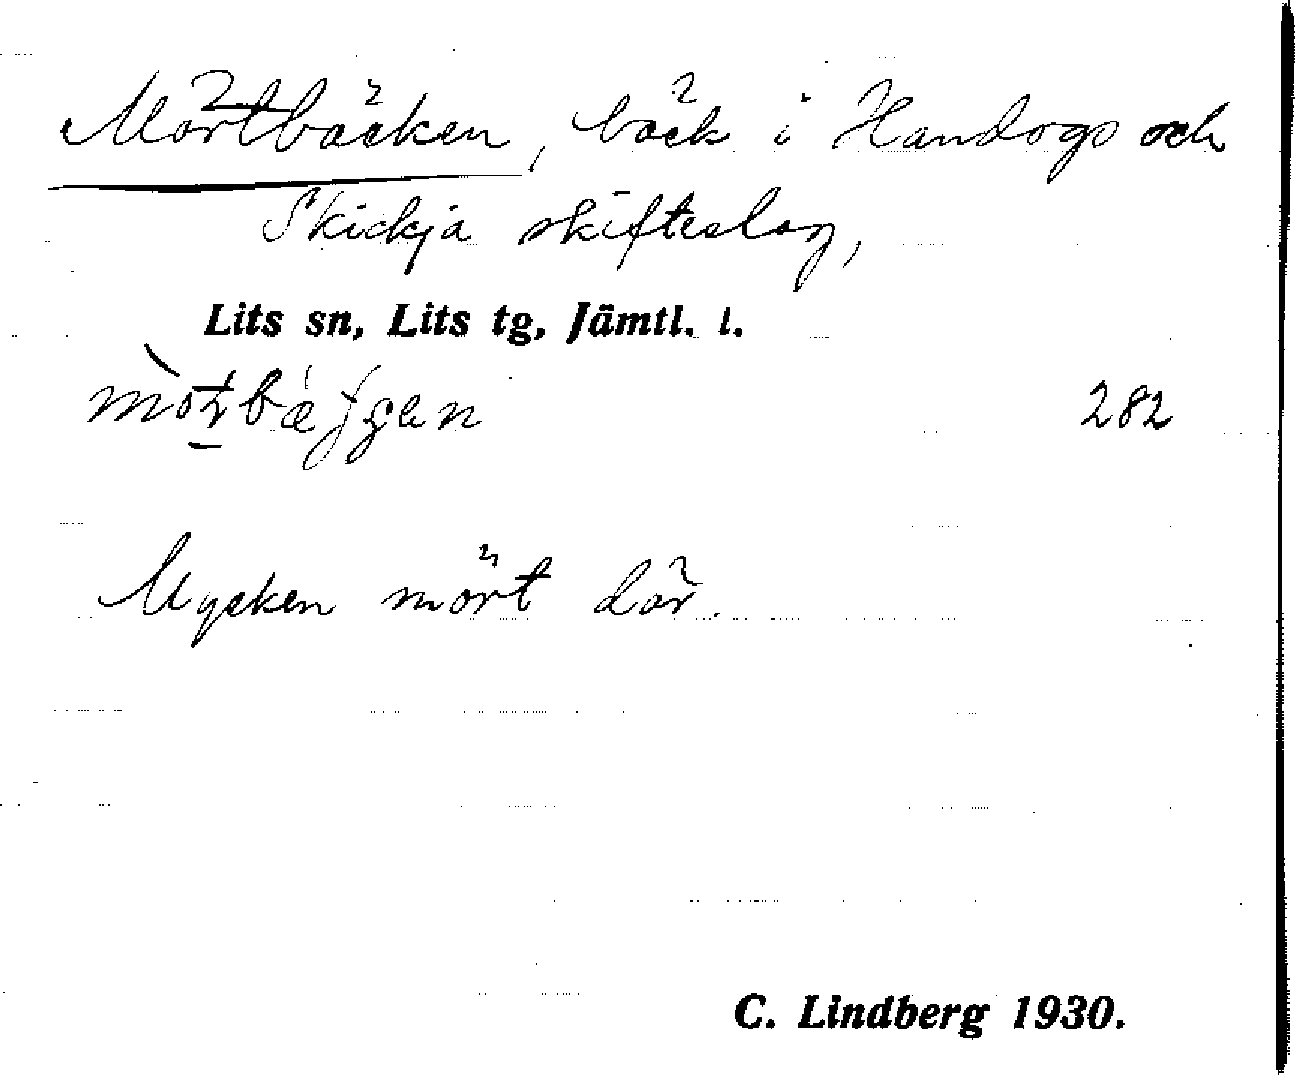 Mörtbäcken, bäck i Handogs och
Skickja skifteslag,
Lits sn, Lits tg, Jämtl. l.
282
Mycken mört där.
C. Lindberg 1930.